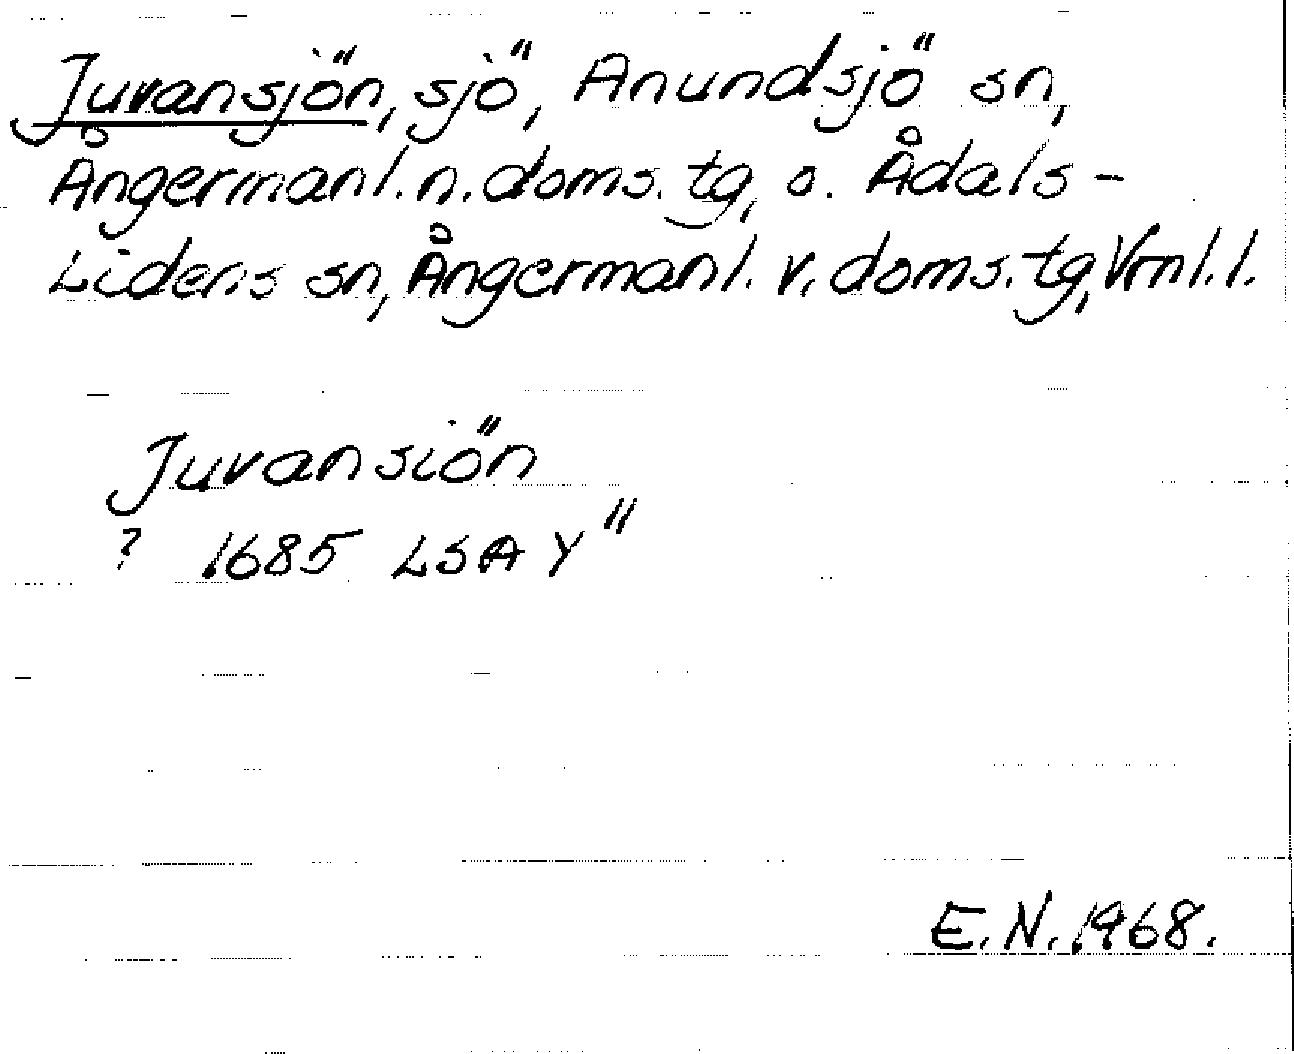 Juvansjön, sjö, Anundsjö sn,
Ångermanl. n. doms. tg, o. Ådals-
Lidens sn, Ångermanl. v. doms. tg, Vrnl. l.
Juvansiön
? 1685 LSA Y"
E. N. 1968.